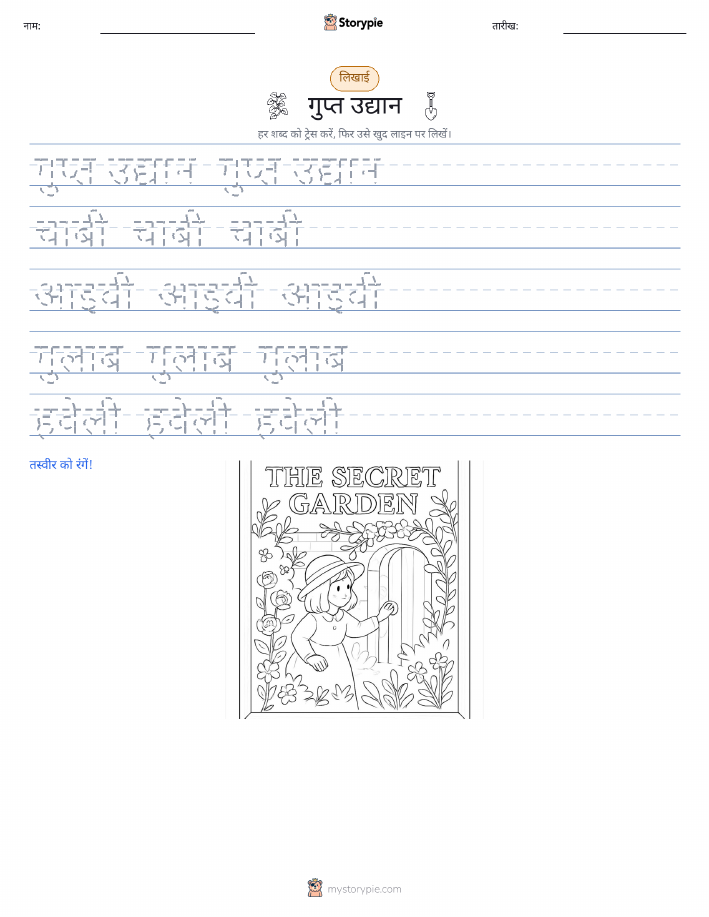 नाम:
Storypie
तारीख:
लिखाई
गुप्त उद्यान
हर शब्द को ट्रेस करें, फिर उसे खुद लाइन पर लिखें।
गुप्त उद्यान गुप्त उद्यान
चाबी चाबी चाबी
आइवी आइवी आइवी
गुलाब गुलाब गुलाब
हवेली हवेली हवेली
तस्वीर को रंगें!
THE SECRET
GARDEN
mystorypie.com